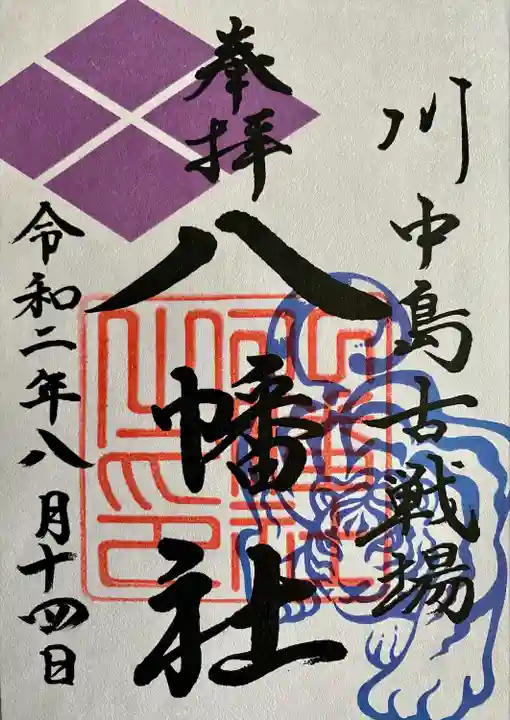 川中島古戦場
奉拝
八幡社
令和二年八月十四日